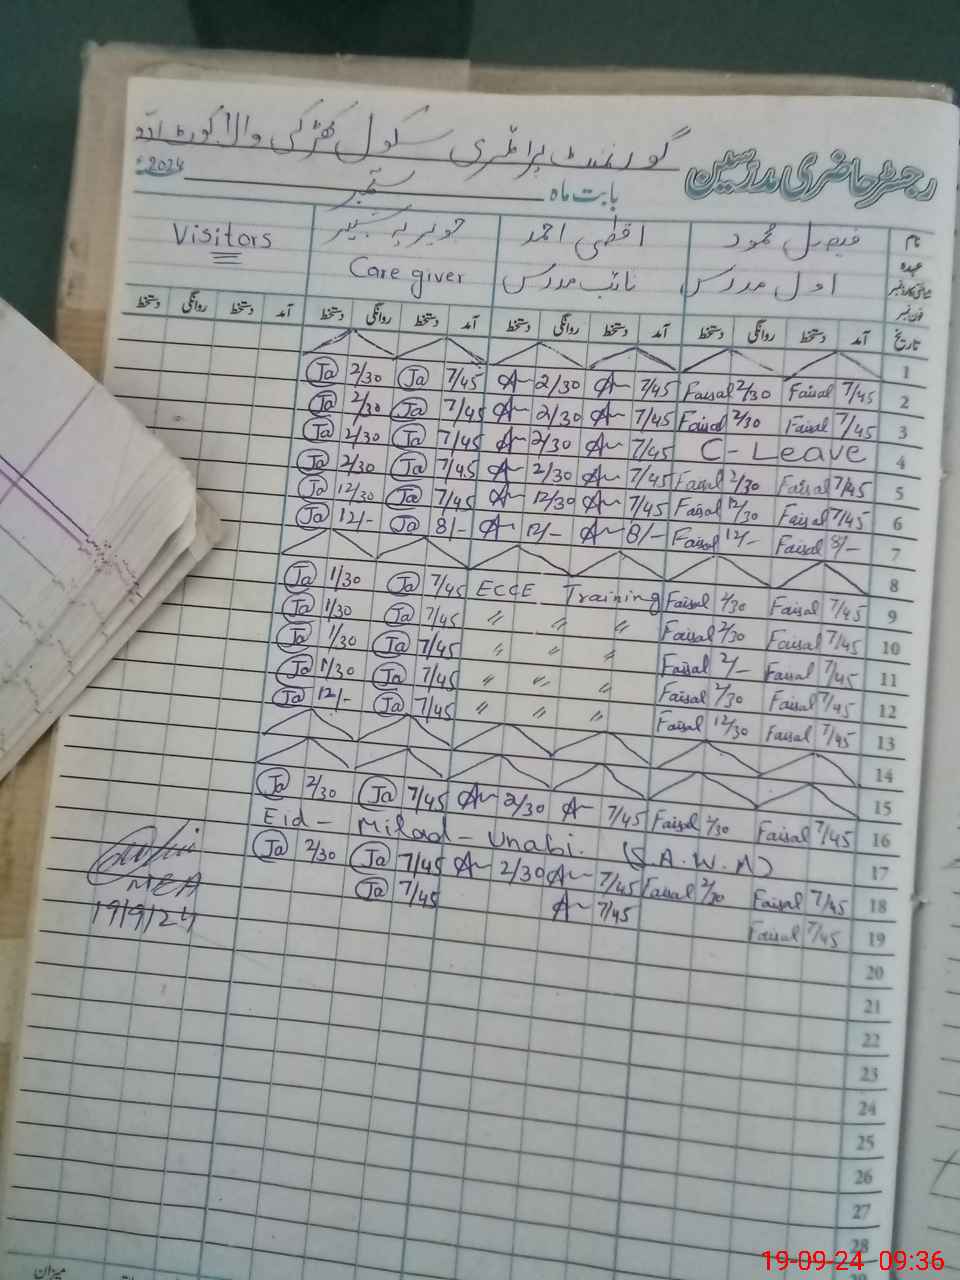 رجسٹر حاضری مدرسین گورنمنٹ پرائمری سکول کھڑکی والا کورٹ ادو
بابت ماہ ستمبر 2024ء
نام فیصل محمود اقطی احمد جویریہ Visitors
عہدہ اول مدرس نائب مدرس Care giver
تاریخ آمد دستخط روانگی دستخط آمد دستخط روانگی دستخط آمد دستخط روانگی دستخط آمد دستخط روانگی دستخط
1
Ja 2/30 Ja 7/45 A 2/30 A 7/45 Faisal 2/30 Faisal 7/45 2
Ja 2/30 Ja 7/45 A 2/30 A 7/45 Faisal 2/30 Faisal 7/45 3
Ja 2/30 Ja 7/45 A 2/30 A 7/45 C - Leave 4
Ja 2/30 Ja 7/45 A 2/30 A 7/45 Faisal 2/30 Faisal 7/45 5
Ja 12/30 Ja 7/45 A 12/30 A 7/45 Faisal 12/30 Faisal 7/45 6
Ja 12/- Ja 8/- A 12/- A 8/- Faisal 12/- Faisal 8/- 7
8
Ja 1/30 Ja 7/45 ECCE Training Faisal 2/30 Faisal 7/45 9
Ja 1/30 Ja 7/45 〃 〃 〃 Faisal 2/30 Faisal 7/45 10
Ja 1/30 Ja 7/45 〃 〃 〃 Faisal 2/- Faisal 7/45 11
Ja 1/30 Ja 7/45 〃 〃 〃 Faisal 2/30 Faisal 7/45 12
Ja 12/- Ja 7/45 〃 〃 〃 Faisal 12/30 Faisal 7/45 13
14
15
Ja 2/30 Ja 7/45 A 2/30 A 7/45 Faisal 2/30 Faisal 7/45 16
Eid - Milad - Unabi. (S.A.W.A) 17
Ja 2/30 Ja 7/45 A 2/30 A 7/45 Faisal 2/30 Faisal 7/45 18
Ja 7/45 A 7/45 Faisal 7/45 19
MEA
19/9/24
20
21
22
23
24
25
26
27
28
29
میزان
19-09-24 09:36